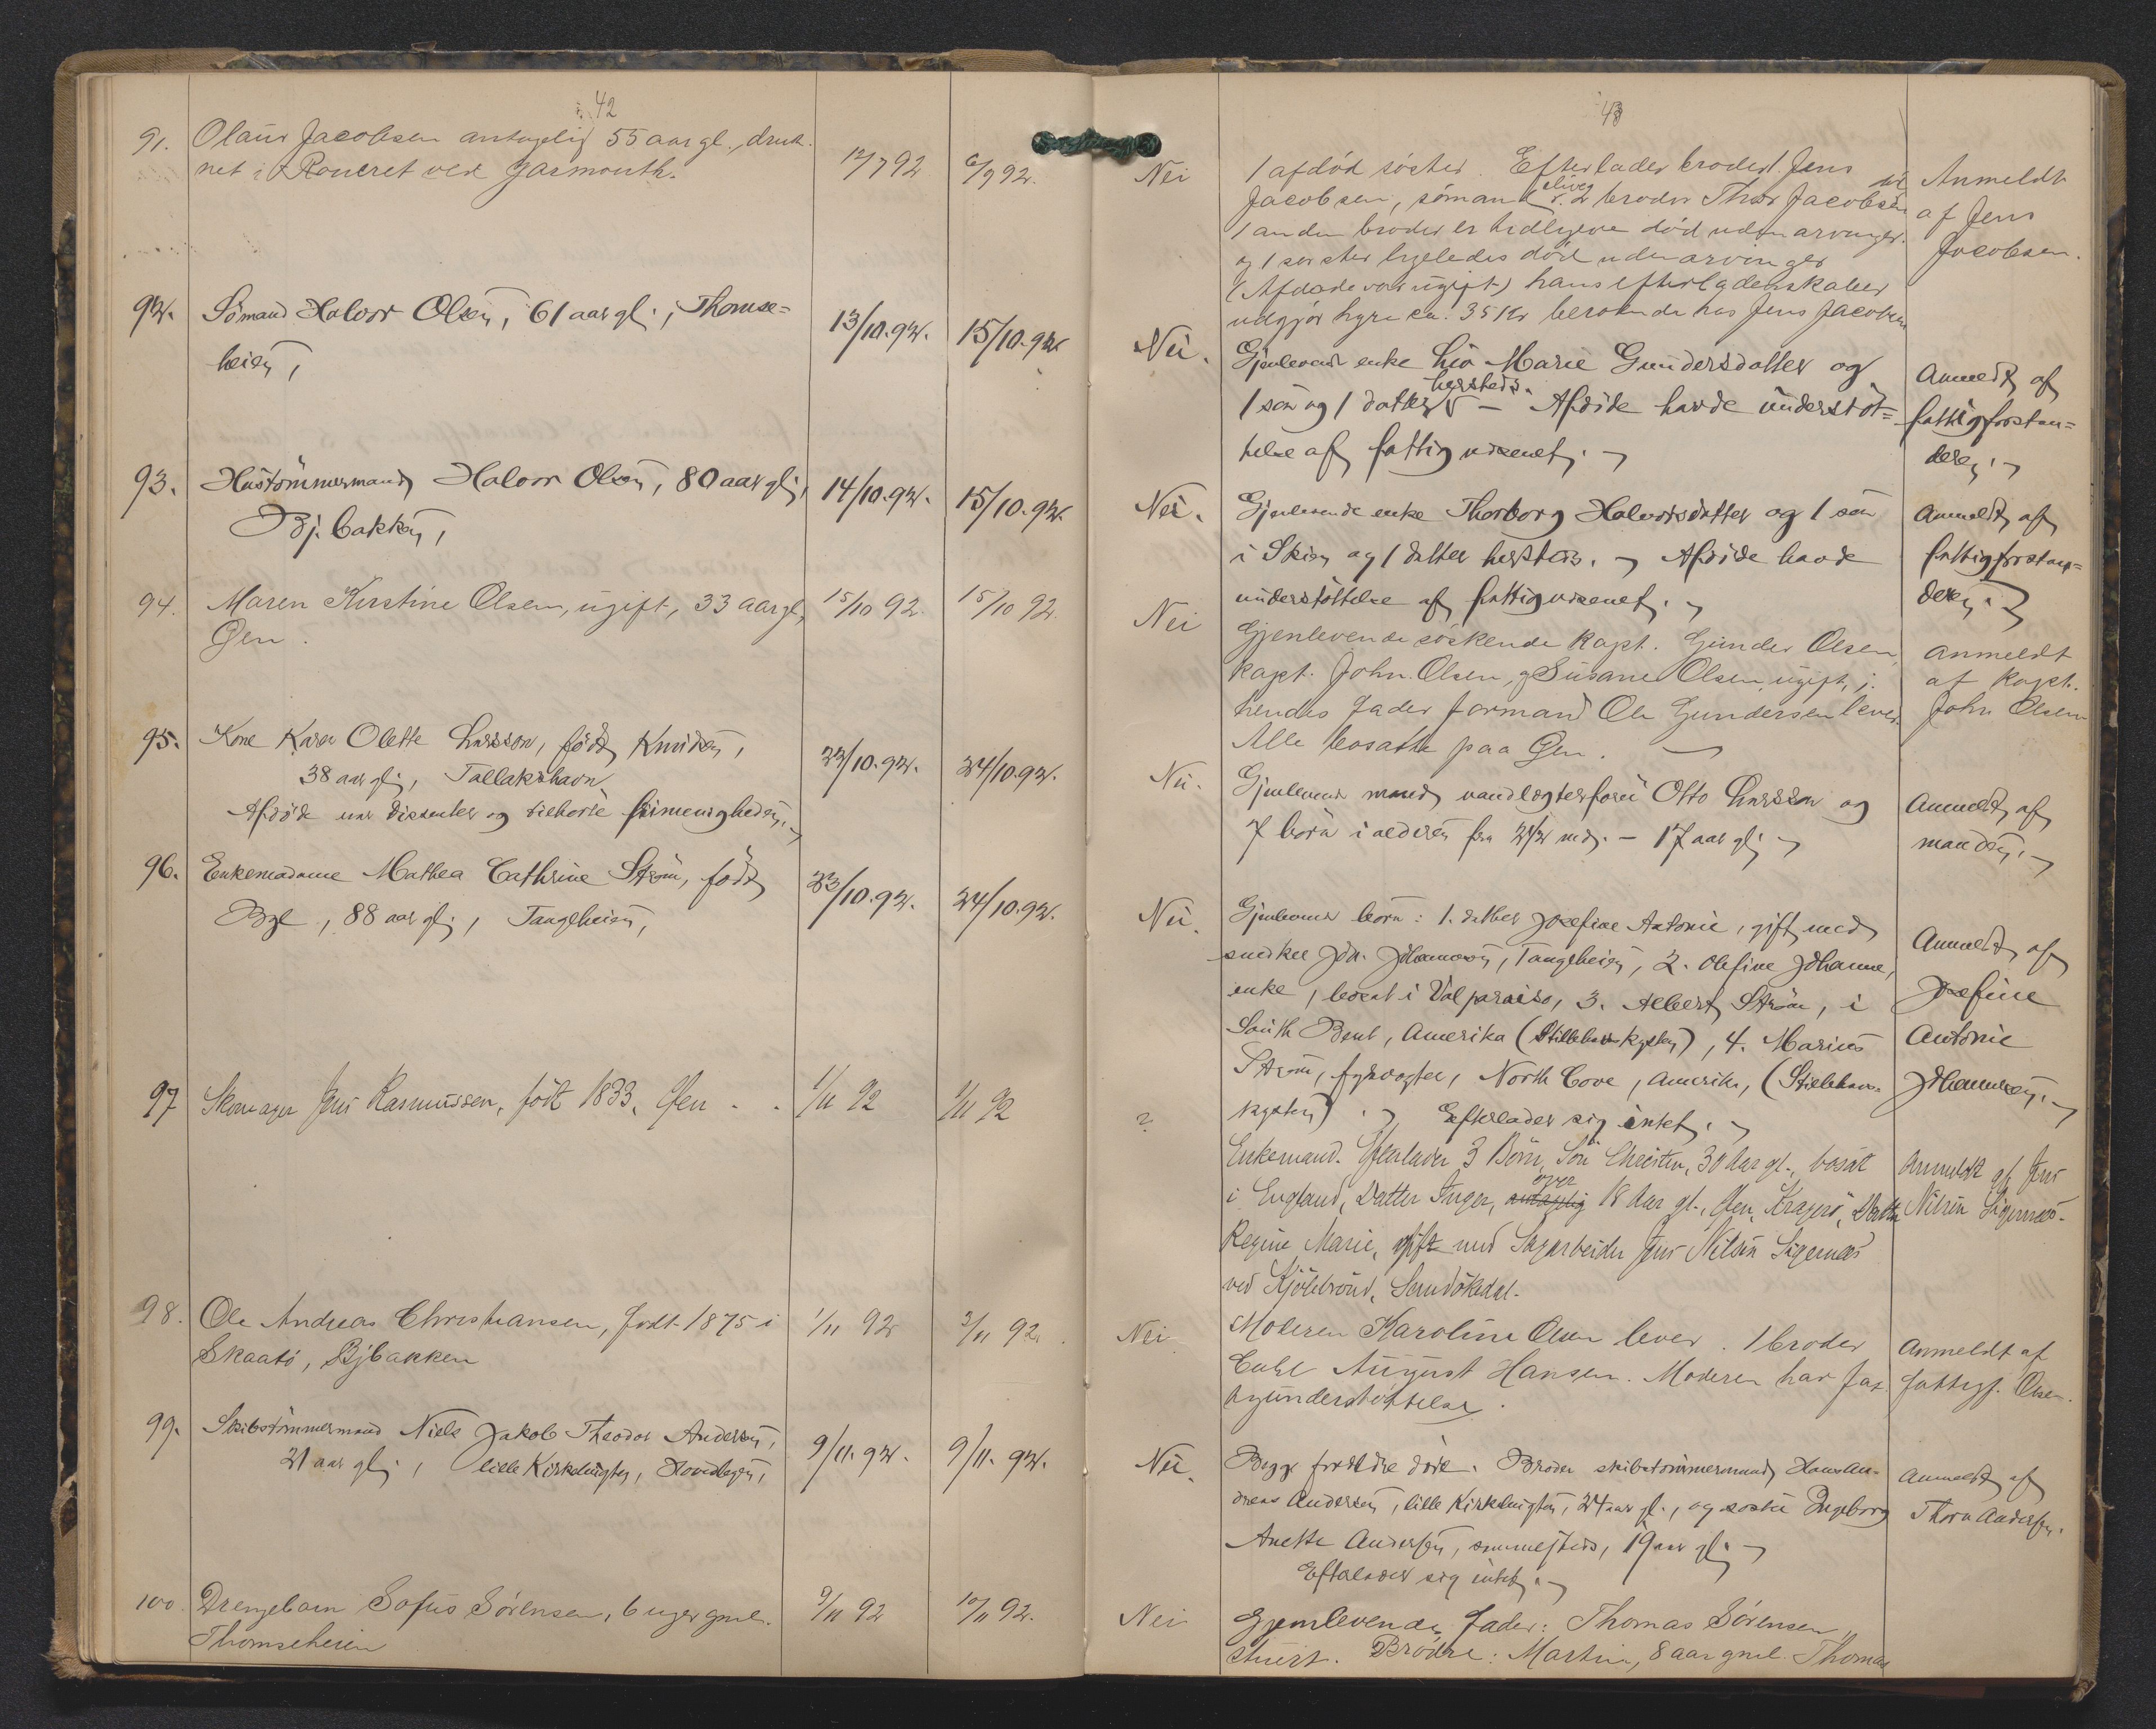 42
91. Olaus Jacobsen antagelig 55 aar gl., druk-
net i Roneret ved Yarmouth.
12/7 92
6/9 92.
92. Sömand Halvor Olsen, 61 aar gl., Thomse-
heien,
13/10.92.
15/10.92.
93. Hustömmermand Halvor Olsen, 80 aar gl.,
Bj.bakken,
14/10.92.
15/10.92.
94. Maren Kirstine Olsen, ugift, 33 aar gl,
Øen.
15/10 92.
15/10 92.
95. Kone Karen Olette Larsson, född Knudsen,
38 aar gl., Tallakshavn
Afdöde var dissenter og tilhörte frimenigheden.
23/10.92.
24/10.92.
96. Enkemadame Mathea Cathrine Ström, född
Bye, 88 aar gl., Tangeheien,
23/10.92.
24/10.92.
97 Skomager Jens Rasmussen, födt 1833, Øen
1/11 92
1/11 92
98. Ole Andreas Christiansen, født 1875 i
Skaatö, Bjbakken
1/11 92
2/11 92.
99. Skibstömmermand Niels Jakob Theodor Andersen,
21 aar gl., lille Kirkebugten,
9/11.92.
9/11.92.
100. Drengebarn Sofus Sörensen, 6 uger gml.
Thomseheien
9/11 92
10/11 92.
43
Nei
1 afdöd söster. Efterlader broder 1. Jens
Jacobsen, sömand 2 broder Thor Jacobsen
1 anden broder er tidligere död uden arvinger.
og 1 sörster ligeledes död uden arvinger
(Afdöde var ugift) hans efterladenskaber
udgjör hyre ca. 35 Kr beroende hos Jens Jacobsen
Anmeldt
af Jens
Jacobsen.
Nei.
Gjenlevende enke Liv Marie Gundersdatter og
1 sön og 1 datter hersteds. — Afdöde havde understöt=
telse af fattigvæsenet.
Anmeldt af
fattigforstan=
deren.
Nei.
Gjenlevende enke Thorborg Halvorsdatter og 1 sön
i Skien og 1 datter hersteds. Afdöde havde
understöttelse af fattigvæsenet.
Anmeldt af
fattigforstan=
deren.
Nei
Gjenlevende söskende Kapt. Gunder Olsen,
Kapt. John Olsen, g Susane Olsen, ugift,
hendes Fader formand Ole Gundersen lever.
Alle bosatte paa Øen.
anmeldt
af Kapt.
John Olsen
Nei.
Gjenlevende mand vandlogterforer Otto Larsson og
7 börn i alderen fra 2 1/2 md. — 17 aar gl.
Anmeldt af
manden.
Nei.
Gjenlevende börn: 1. datter Josefine Antonie, gift med
snedker Joh. Johannesen, Tangeheien, 2. Olefine Johanne,
enke, bosat i Valparaiso, 3. Albert Ström, i
South Bent, Amerika (Stillehavskysten), 4. Marius
Ström, fyrvogter, North Cove, Amerika, (Stillehavs-
kysten). Efterlader sig intet.
Anmeldt af
Josefine
Antonie
Johannesen.
?
Enkemand. Efterlader 3 Börn, Sön Christen, 30 Aar gl., bosat
i England, Datter Inger, antagelig over 18 Aar gl., Øen, Kragerö, Datter
Regine Marie, gift med Sagarbeider Jens Nilsen Sigernes
ved Kjölebrönd, Sandökedal.
Anmeldt af Jens
Nilsen Sigernes.
Nei
Moderen Karoline Olsen lever. 1 broder
Carl August Hansen. Moderen har fat-
tigunderstöttelse.
Anmeldt af
fattigf. Olsen.
Nei.
Begge forældre döde. Broder skibstömmermand Hans An-
dreas Andersen, lille Kirkebugten, 24 aar gl., og söster Ingeborg
Anette Andersen, sammesteds, 19 aar gl.
Efterlader sig intet.
Anmeldt af
Thora Andersen.
Nei
Gjenlevende Fader: Thomas Sörensen,
stuert. Brödre: Martin, 8 aar gml. Thomas